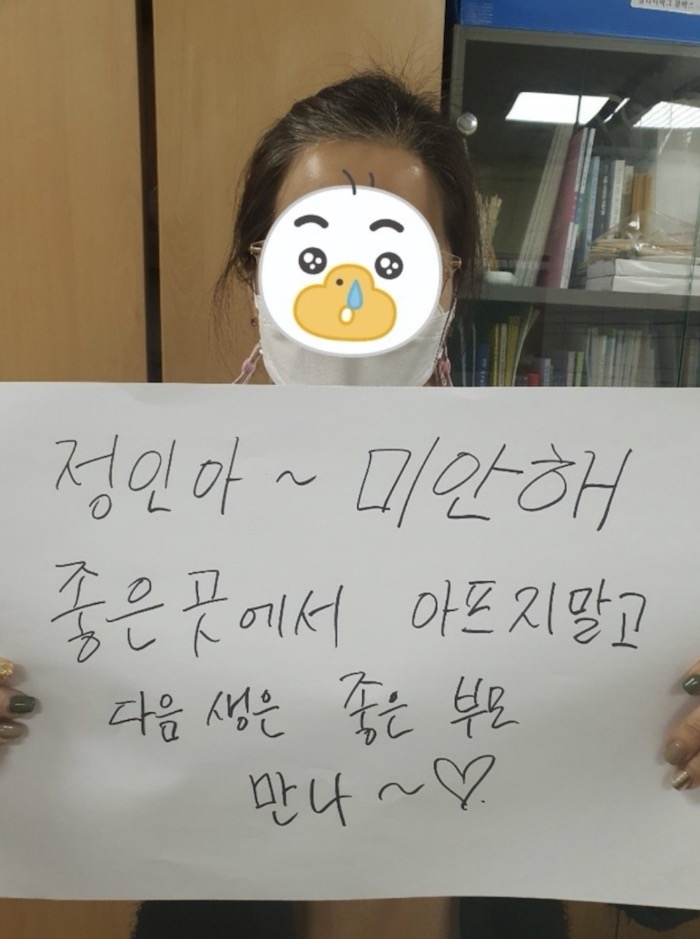 정인아 ~ 미안해
좋은 곳에서 아프지말고
다음 생은 좋은 부모
만나 ~ ♡